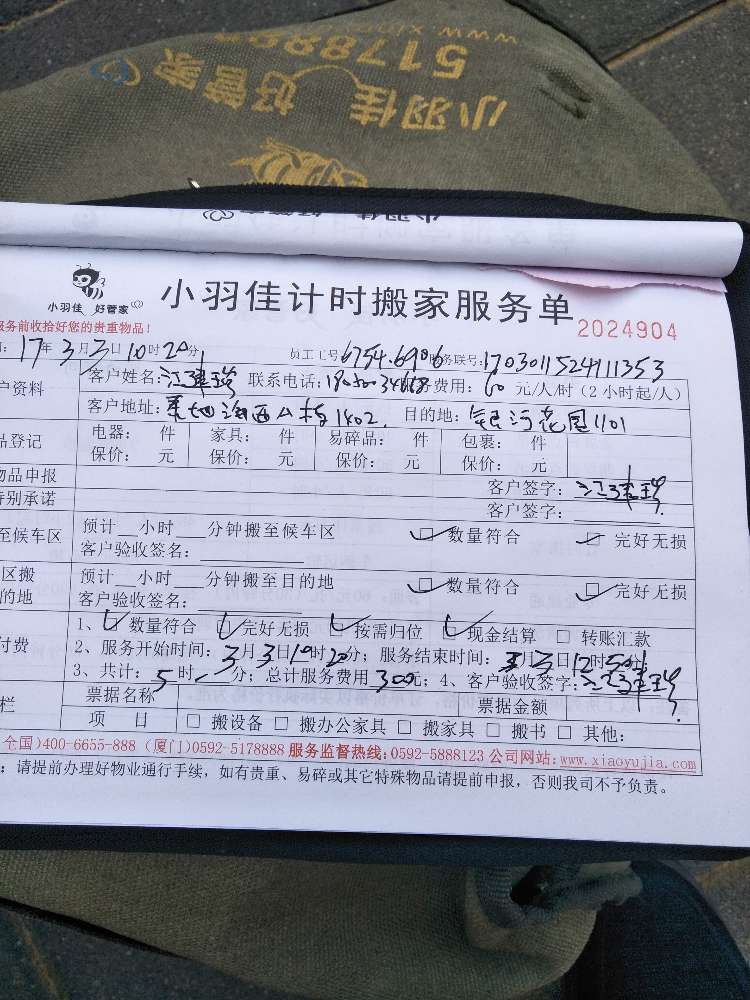 www.xin
5178887
小羽佳 好管家
小羽佳 好管家
小羽佳 好管家
小羽佳计时搬家服务单
2024904
服务前收拾好您的贵重物品!
17年3月3日10时20分 员工工号:6754.6906 服务联号:1703011524111353
户资料 客户姓名:江 联系电话: 费用:60元/人/时(2小时起/人)
客户地址: 海西公 1402. 目的地:银河花园1101
品登记 电器: 件 家具: 件 易碎品: 件 包裹: 件
保价: 元 保价: 元 保价: 元 保价: 元
物品申报 客户签字:江
特别承诺 客户签字:
至候车区 预计__小时___分钟搬至候车区 ☑数量符合 ☑完好无损
客户验收签名:
区搬 预计__小时___分钟搬至目的地 ☑数量符合 ☑完好无损
的地 客户验收签名:
1、☑数量符合 ☑完好无损 ☑按需归位 ☑现金结算 □ 转账汇款
付费 2、服务开始时间:3月3日10时20分;服务结束时间:3月3日12时50分;
3、共计:5时 分;总计服务费用300元;4、客户验收签字:江
栏 票据名称 票据金额
项 目 □ 搬设备 □ 搬办公家具 □ 搬家具 □ 搬书 □ 其他:
全国)400-6655-888 (厦门)0592-5178888 服务监督热线:0592-5888123 公司网站:www.xiaoyujia.com
:请提前办理好物业通行手续,如有贵重、易碎或其它特殊物品请提前申报,否则我司不予负责。